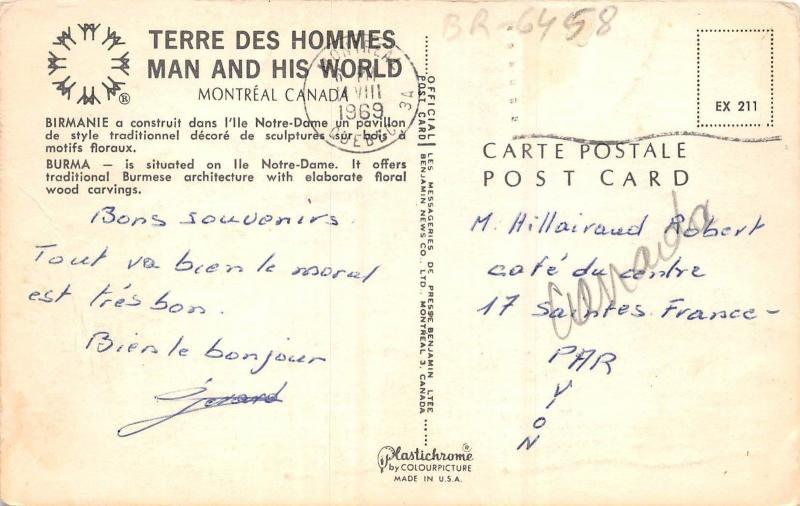 BR-6458
TERRE DES HOMMES
MAN AND HIS WORLD
MONTRÉAL CANADA
®
MONTREAL
PM
VIII
1969
QUEBEC 3A
BIRMANIE a construit dans l'Ile Notre-Dame un pavillon
de style traditionnel décoré de sculptures sur bois à
motifs floraux.
BURMA — is situated on Ile Notre-Dame. It offers
traditional Burmese architecture with elaborate floral
wood carvings.
Bons souvenirs
Tout va bien le moral
est très bon.
Bien le bonjour
Gérard
OFFICIAL POST CARD
LES MESSAGERIES DE PRESSE BENJAMIN LTÉE
BENJAMIN NEWS CO. LTD., MONTREAL 3, CANADA
Plastichrome®
by COLOURPICTURE
MADE IN U.S.A.
EX 211
CARTE POSTALE
POST CARD
M. Hillairaud Robert
café du centre
17 Saintes. France-
PAR
VION
Canada